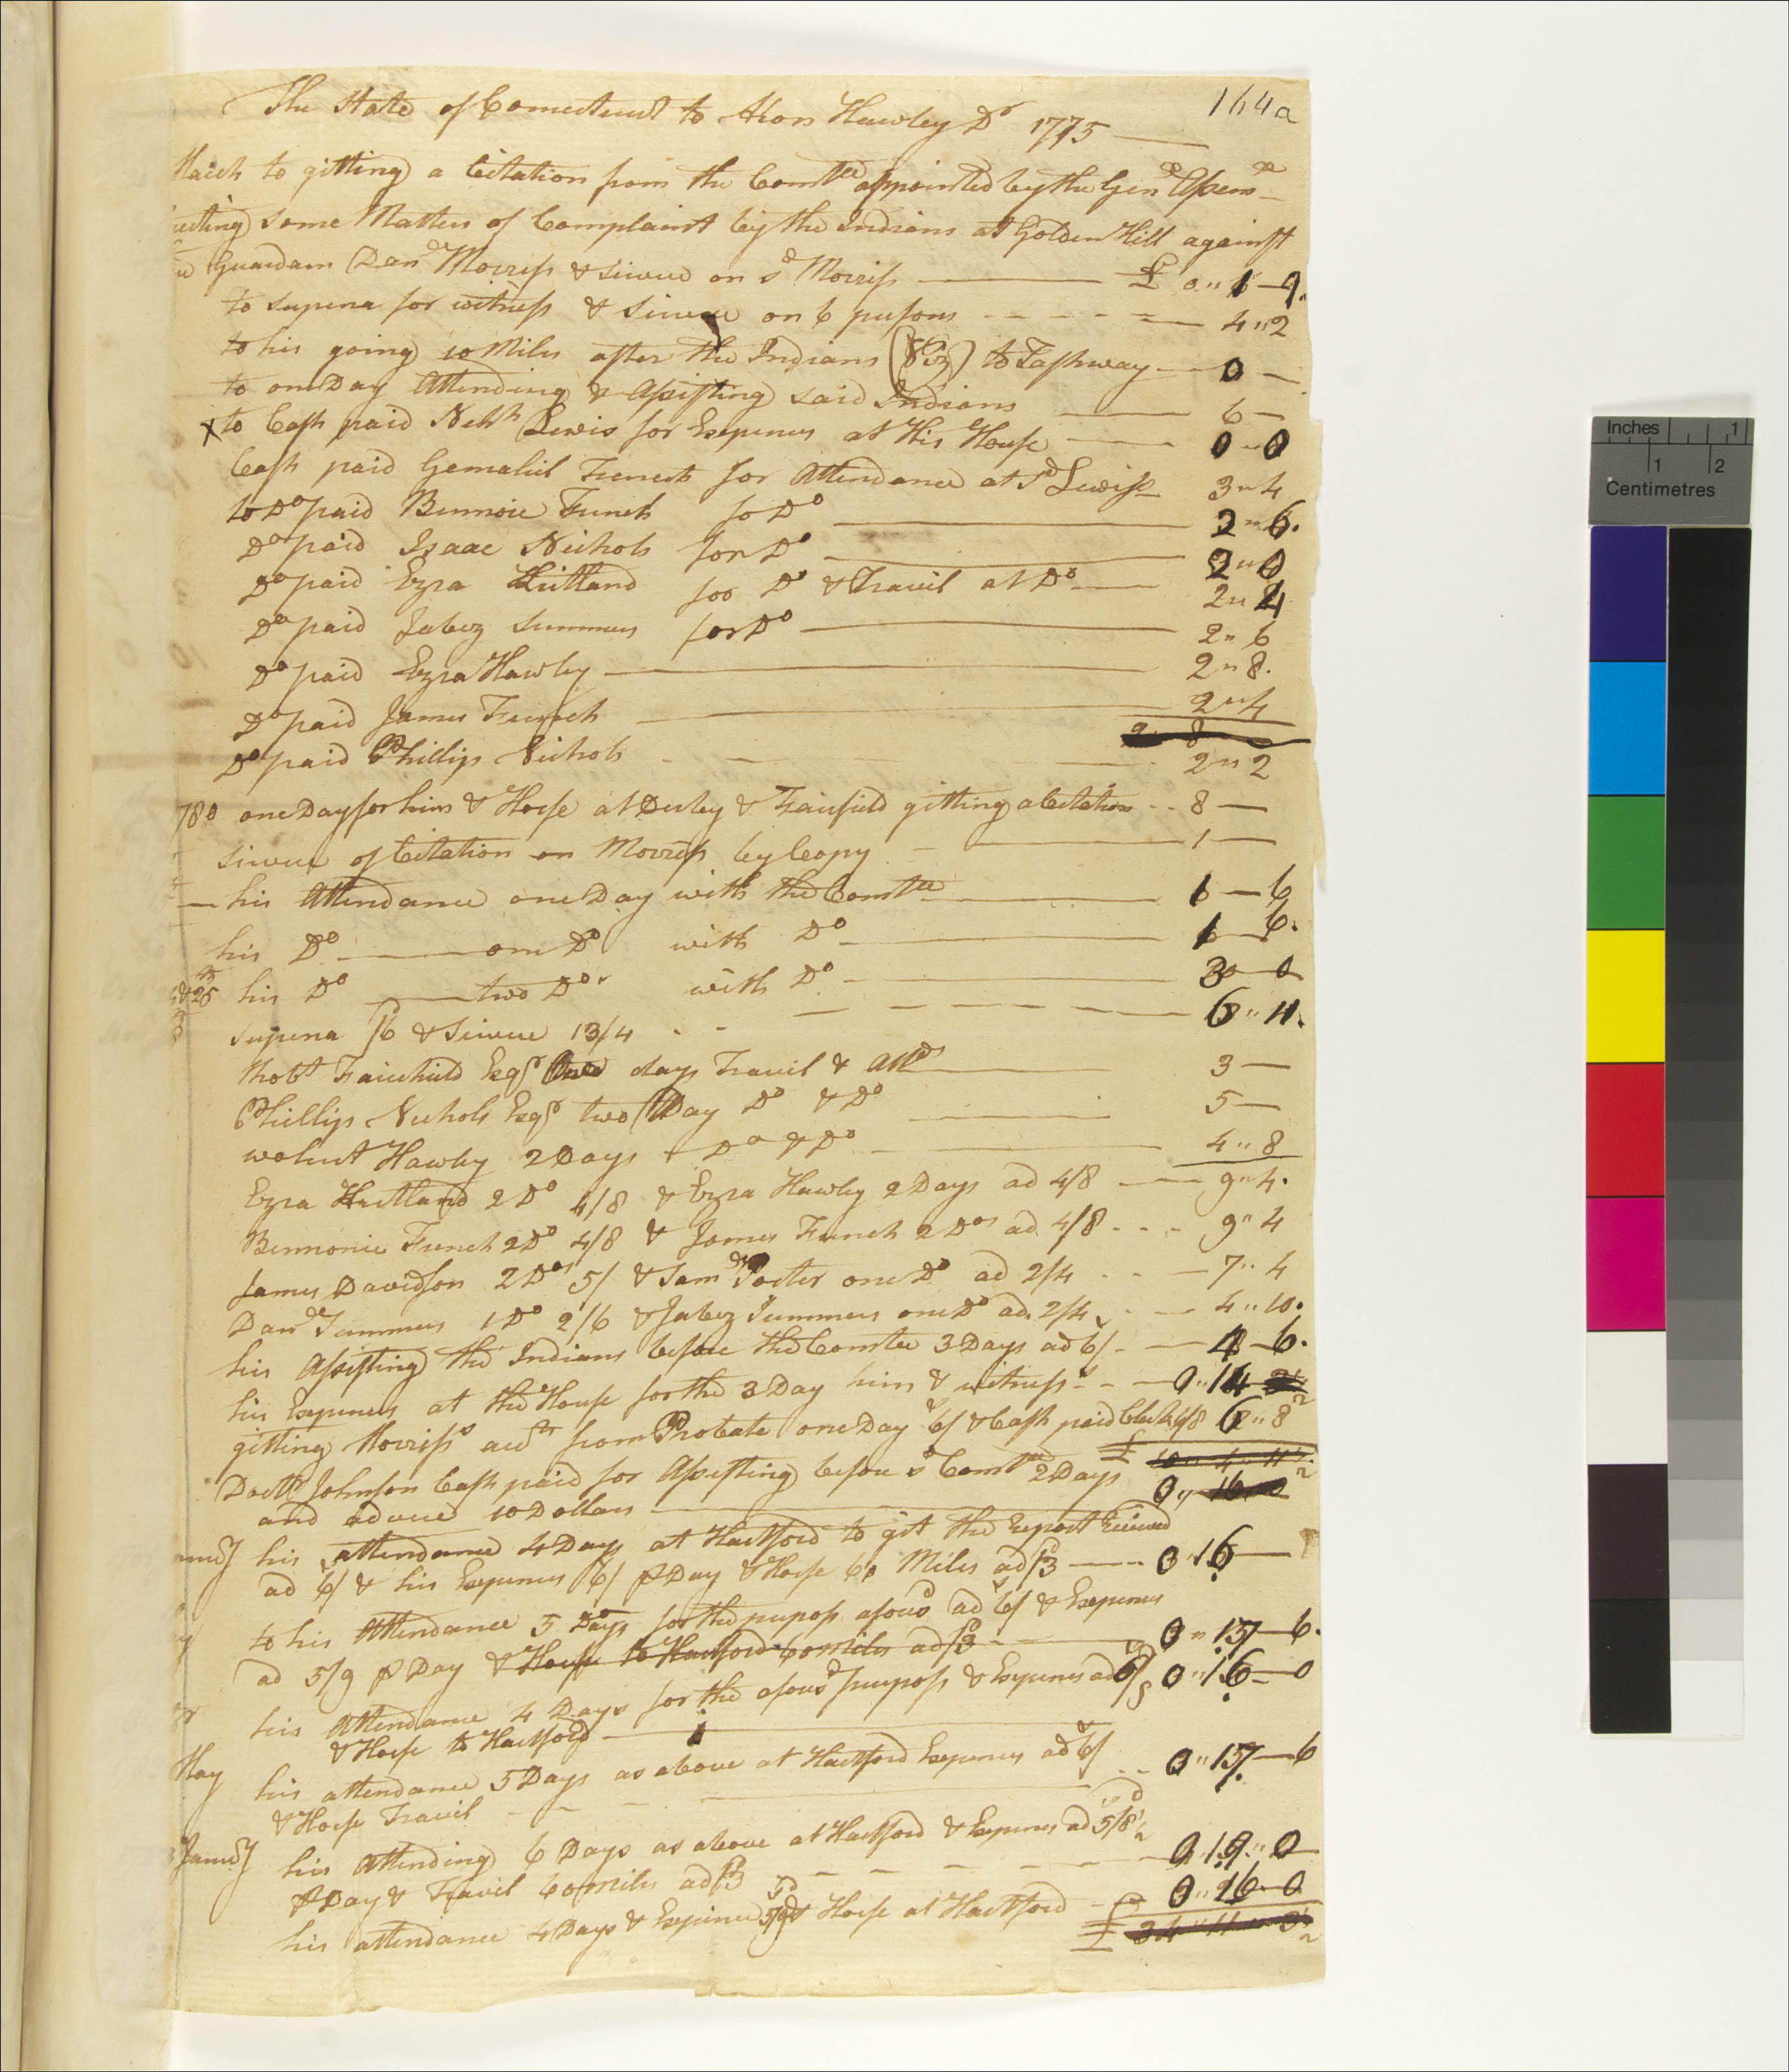 164a
The State of Connecticut to Aron Hawley Dr 1775
March to gitting a Citation from the Comtee appointed by the Genll Assem
some Matters of Complaint by the Indians at Golden Hill against
Guardian Danll Morriss & sirvice on sd Morriss £ 0 1 9
to supena for witness & sirvice on 6 persons 4 " 2
to his going 10 Miles after the Indians (Viz) to Tashway 0
to one Day Attending & Assisting said Indians 6
x to Cash paid Nehh Lewis for Expences at His House 0 " 0
Cash paid Gemaliel French for Attendance at sd Lewiss 3 " 4
to Do paid Binnonie French fo Do 2 " 6
Do paid Isaac Nichols for Do 2 " 0
Do paid Ezra Kirtland for Do & Travil at Do 2 " 4
Do paid Jabez Summers for Do 2 " 6
Do paid Ezra Hawley 2 " 8
Do paid James French 2 " 4
Do paid Phillip Nichols 2 " 2
780 one Day for him & Horse at Derby & Fairfield gitting a Citation 8
sirvice of Citation on Morriss by Coopy 1
his Attendance one Day with the Comtee 1 6
his Do one Do with Do 1 6
& 25 his Do two Dos with Do 3 0
supena /6 & sirvice 13/4
Robt Fairchild Esqr days Travil & Attd 3
Phillip Nichols Esqr two Day Do & Do 5
wolcut Hawley 2 Days Do & Do 4 " 8
Ezra Kirtland 2 Do 4/8 & Ezra Hawley 2 Days ad 4/8 9 " 4
Binnonie French 2 Do 4/8 & James French 2 Dos ad 4/8 9 " 4
James Davidson 2 Dos 5/ & Samll Porter one Do ad 2/4 7 " 4
Danll Summers 1 Do 2/6 & Jabez Summers one Do ad 2/4 4 " 10
his Assisting the Indians before the Comtee 3 Days ad 6/ 6
his Expences at the House for the 3 Day him & witnesss 0 " 14
gitting Morrisss acctt from Probate one Day 6/ & Cash paid Clerk 6 " 8
Doctr Johnson Cash paid for Assisting before sd Comtee 2 Days
and advice 10 Dollars
his attendance 4 Days at Hartford to git the Report Received
ad 6/ & his Expences 6/ pr Day & Horse 60 Miles ad /3 0 " 16
to his Attendance 5 Days for the purposs aforsd ad 6/ & Expences
ad 5/9 pr Day & Horse to Hartford 60 miles ad /3 0 " 17 6
his Attendance 4 Days for the aforsd purposs & Expences ad 0 " 16 0
& Horse to Hartford
May his attendance 5 Days as above at Hartford Expences ad 6/
& Horse Travil 0 " 17 6
Janury his Attending 6 Days as above at Hartford & Expences ad 5/8½
pr Day & Travil 60 miles ad /3 0 19 " 0
his attendance 4 Days & Expences 5/9 & Horse at Hartford 0 " 16 0
£ 34 " 11 3½
Inches 1
1 2
Centimetres